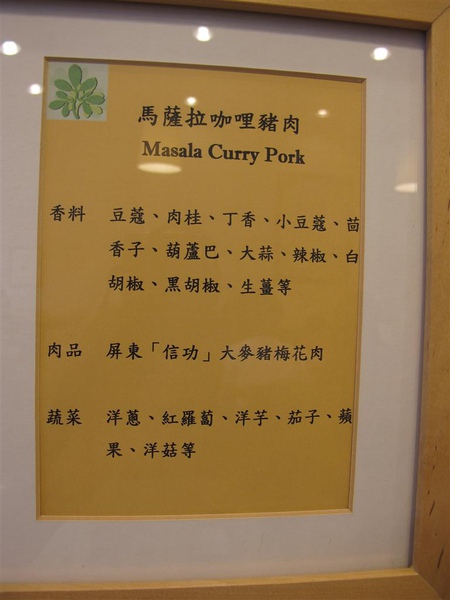 馬薩拉咖哩豬肉
Masala Curry Pork
香料 豆蔻、肉桂、丁香、小豆蔻、茴
香子、葫蘆巴、大蒜、辣椒、白
胡椒、黑胡椒、生薑等
肉品 屏東「信功」大麥豬梅花肉
蔬菜 洋蔥、紅羅蔔、洋芋、茄子、蘋
果、洋菇等